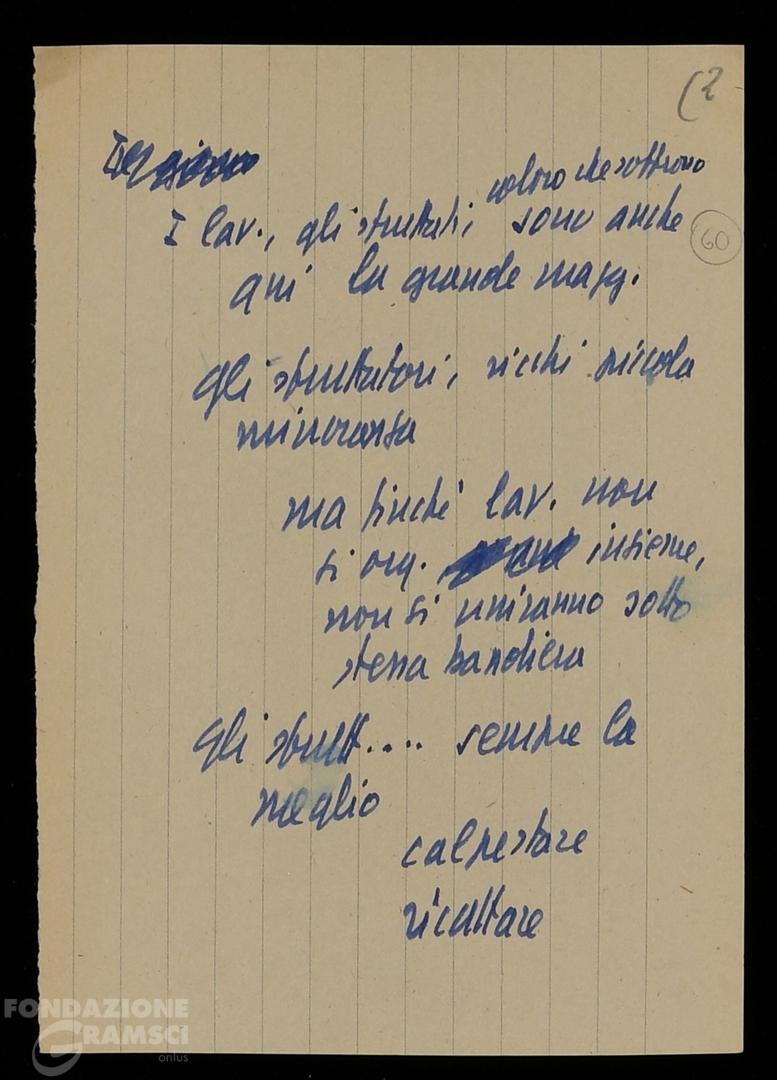 (2
60
coloro che soffrono
I lav., gli sfruttati, sono anche
qui la grande magg.
gli sfruttatori, ricchi piccola
minoranza
ma finché lav. non
si org. insieme,
non si uniranno sotto
stessa bandiera
gli sfrutt.... sempre la
meglio
calpestare
ricattare
FONDAZIONE
GRAMSCI
onlus